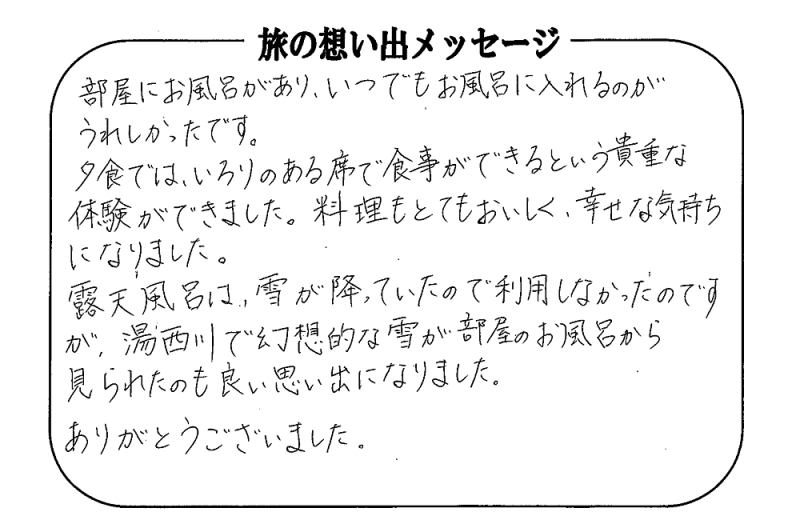 旅の想い出メッセージ
部屋にお風呂があり、いつでもお風呂に入れるのが
うれしかったです。
夕食では、いろりのある席で食事ができるという貴重な
体験ができました。料理もとてもおいしく、幸せな気持ち
になりました。
露天風呂は、雪が降っていたので利用しなかったのです
が、湯西川で幻想的な雪が部屋のお風呂から
見られたのも良い思い出になりました。
ありがとうございました。